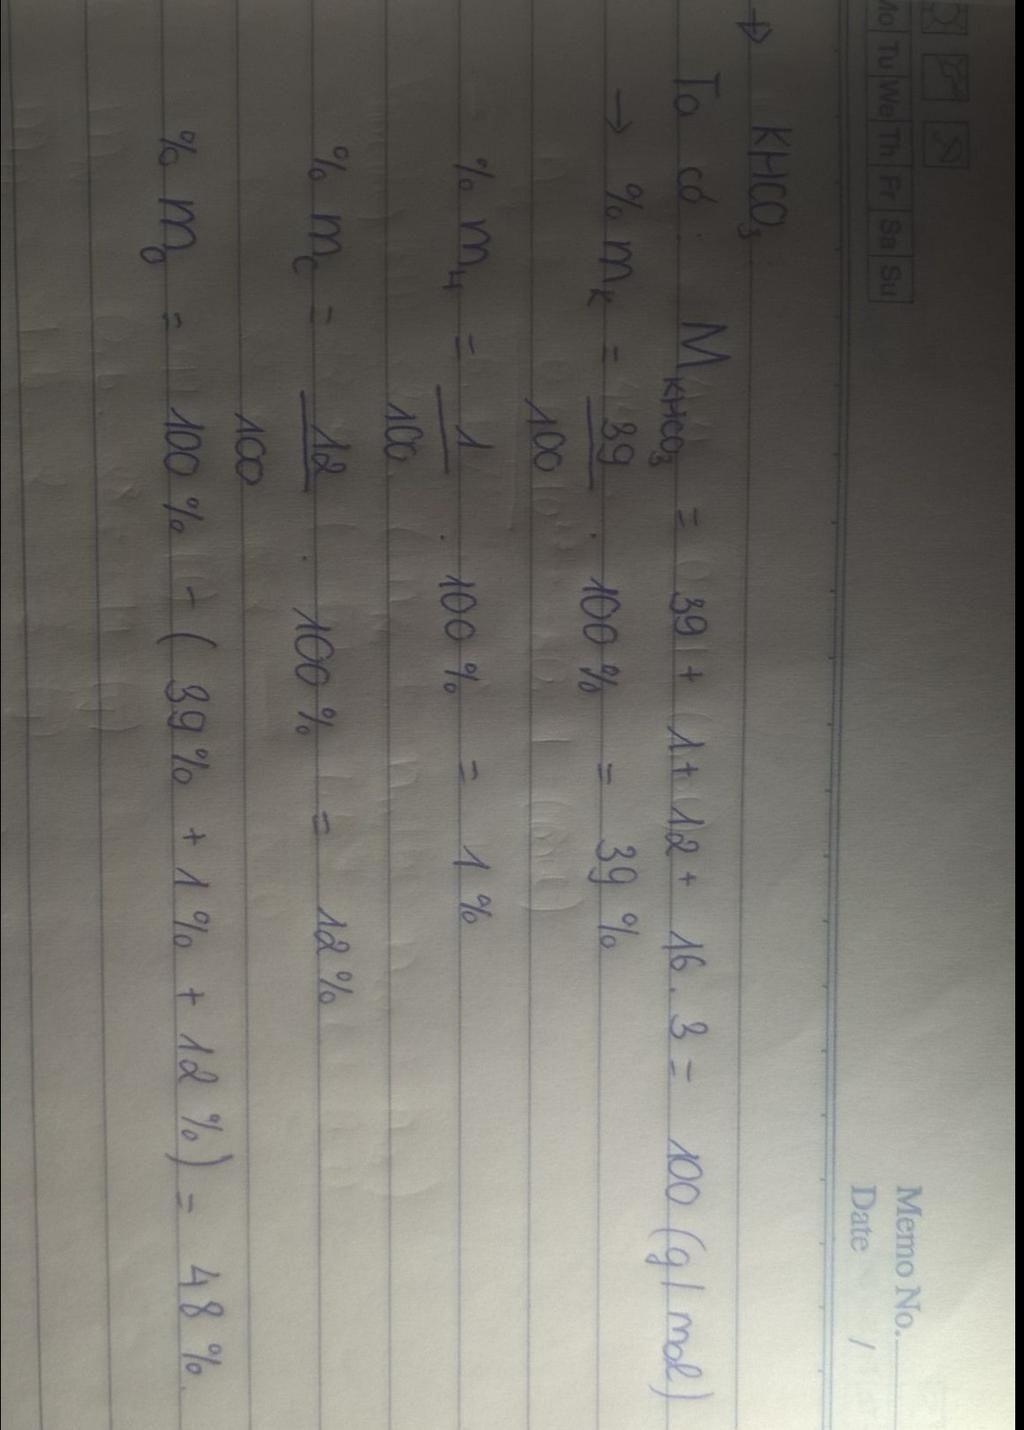 Memo No.
Mo Tu We Th Fr Sa Su
Date /
→ KHCO₃
Ta có: M_KHCO₃ = 39 + 1 + 12 + 16 . 3 = 100 (g/mol)
→ % m_K = 39/100 . 100 % = 39 %
% m_H = 1/100 . 100 % = 1 %
% m_C = 12/100 . 100 % = 12 %
% m_O = 100 % - ( 39 % + 1 % + 12 % ) = 48 %.